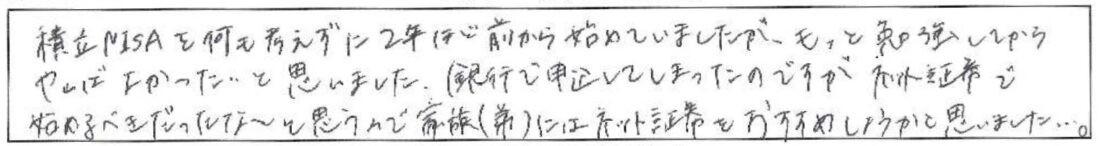 積立NISAを何も考えずに2年ほど前から始めていましたが、もっと勉強してから
やればよかった…と思いました。(銀行で申込してしまったのですがネット証券で
始めるべきだったな〜と思うので家族(弟)にはネット証券をおすすめしようかと思いました…。